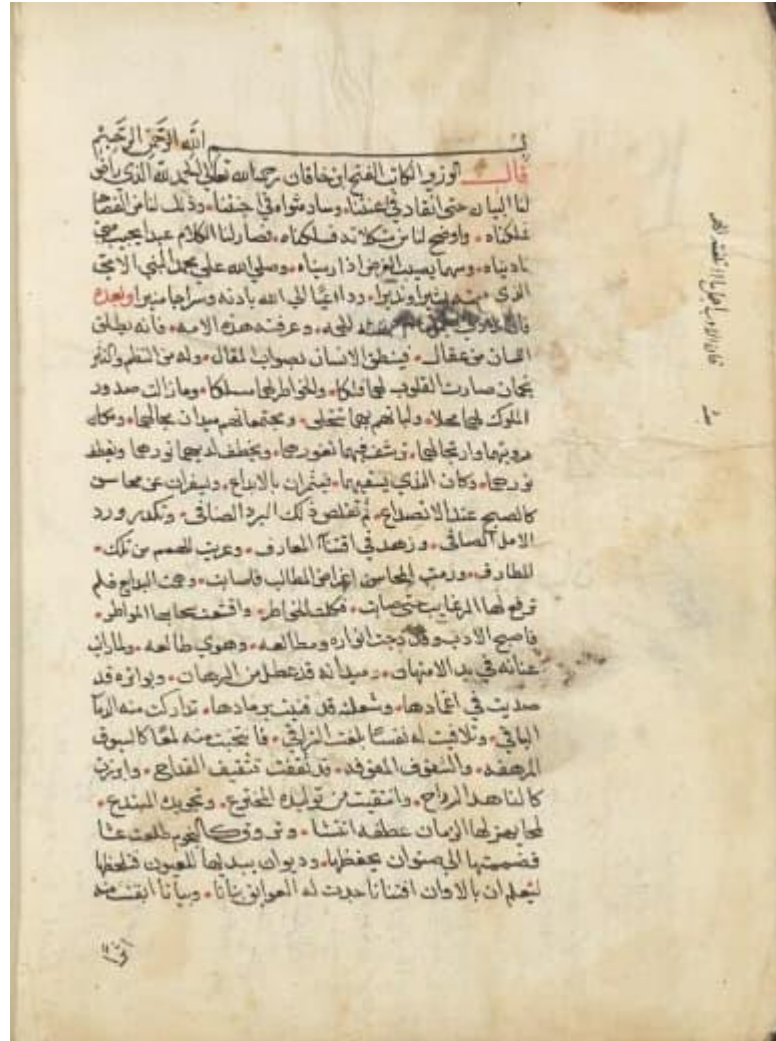 بسم الله الرحمن الرحيم
قال الوزير الكاتب الفتح ابن خاقان رحمه الله تعالى الحمد لله الذي راض
لنا البيان حتى انقاد في اعنتنا وساد مثواه في اجنتنا وذلل لنا من الفصاحة
فملكناه واوضح لنا من مشكلاته فسلكناه فصار لنا الكلام عبدا يجيب متى
ناديناه وسهما يصيب الغرض اذا رميناه وصلى الله علي محمد النبي الامي
الذي بعثه بشيرا ونذيرا وداعيا الي الله باذنه وسراجا منيرا وبعده
فان الادب هذه الامه فانه يطلق
اللسان من عقال فينطق الانسان بصواب المقال وله من النظم والنثر
نجمان صارت القلوب لهما فلكا والخواطر لهما مسلكا وما زالت صدور
الملوك لهما محلا ولباتهم بهما تتحلى ومجتمعاتهم ميدان مجالهما ومكان
رويتهما وارتجالهما ترشف فيهما ثغورها ويخطف لديهما نورها ويقطف
نورها وكان الذي يسقيهما يثمران بالابداع ويسفران عن محاسن
كالصبح عند الانصداع ثم تقلص ذلك البرد الضافي وتكدر ورد
الامل الصافي وزهد في اقتنآ المعارف وعريت الهمم من تلك
المطارف ورمت المحاسن اغراض المطالب فاصابت ودعت البدايع فلم
ترفع لها الرغايب حتى فكلت الخواطر واقشعت سحابها المواطر
فاصبح الادب وقد دجت انواره ومطالعه وهوي طالعه ولما رايت
عنانه في يد الامتهان وميدانه قد عطل من الرهان وبواتره قد
صديت في اغمادها وشعله قد فنيت برمادها تداركت منه الذمآ
الباقي وتلافيت له نفسا بلغت التراقي فانتخبت منه لمعا كالسيوف
المرهفه والشفوف المفوفه قد ثقفت تثقيف القداح وابرزن
كالناهد الرداح وانتقيت من توليده المخترع وتجويده المبتدع
لمحا يهز لها الزمان عطفه انتشا وتروق كالنجوم طلعت عشا
فضممتها الي صنوان يحفظها وديوان يبديها للعيون فتلحظها
ليعلم ان بالاوان افتنانا حدت له العوايق بنانا وبيانا ابقت منه
فان الادب اجل ما